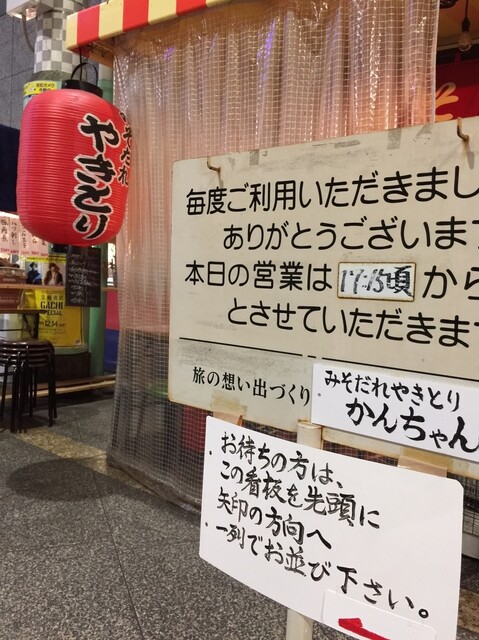 みそだれ
やきとり
毎度ご利用いただきまし
ありがとうございます
本日の営業は 17:15頃 から
とさせていただきます
旅の想い出づくり
みそだれやきとり
かんちゃん
・お待ちの方は、
この看板を先頭に
矢印の方向へ
・一列でお並び下さい。
GACHI
SPECIAL
12.14